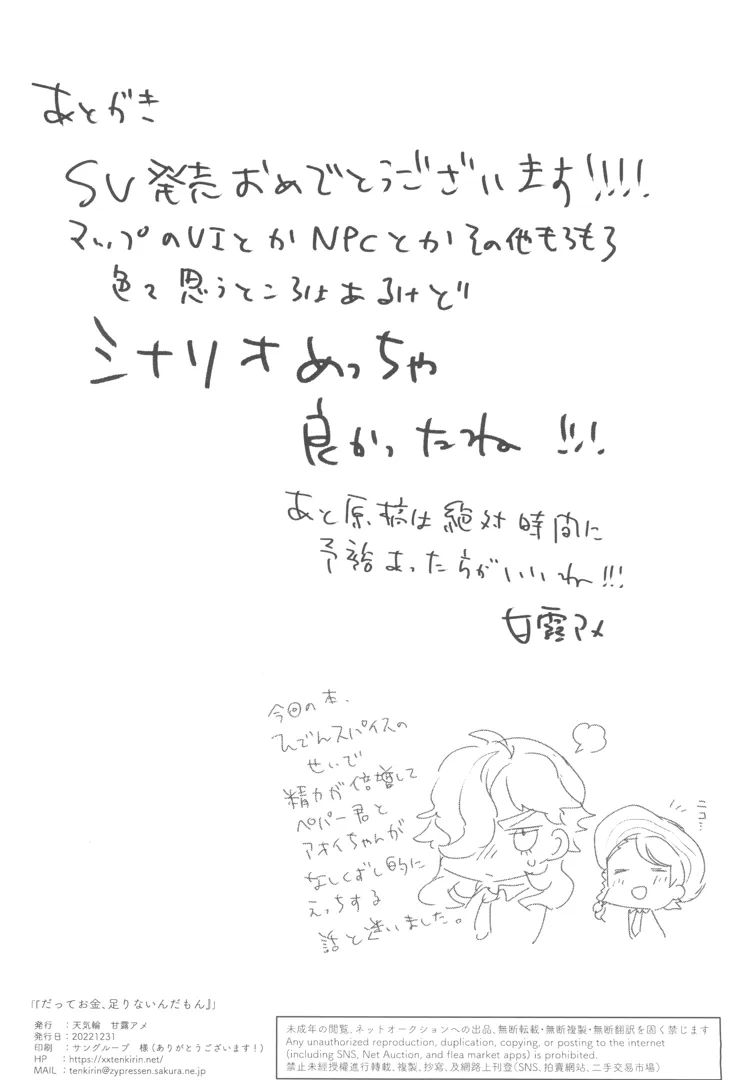 あとがき
SV発売おめでとうございます!!!!
マップのUIとかNPCとかその他もろもろ
色々思うところはあるけど
シナリオめっちゃ
良かったね!!!
あと原稿は絶対時間に
予裕あった方がいいね!!!
甘露アメ
今回の本、
ひでんスパイスの
せいで
精力が倍増して
ペパー君と
アオイちゃんが
なしくずし的に
えっちする
話と迷いました。
ニコ…
『だってお金、足りないんだもん』
発行 ：天気輪 甘露アメ
発行日：20221231
印刷 ：サングループ 様（ありがとうございます！）
HP ：https://xxtenkirin.net/
MAIL ：tenkirin@zypressen.sakura.ne.jp
未成年の閲覧、ネットオークションへの出品、無断転載・無断複製・無断翻訳を固く禁じます
Any unauthorized reproduction, duplication, copying, or posting to the internet
(including SNS, Net Auction, and flea market apps) is prohibited.
禁止未經授權進行轉載、複製、抄寫、及網路上刊登（SNS、拍賣網站、二手交易市場）